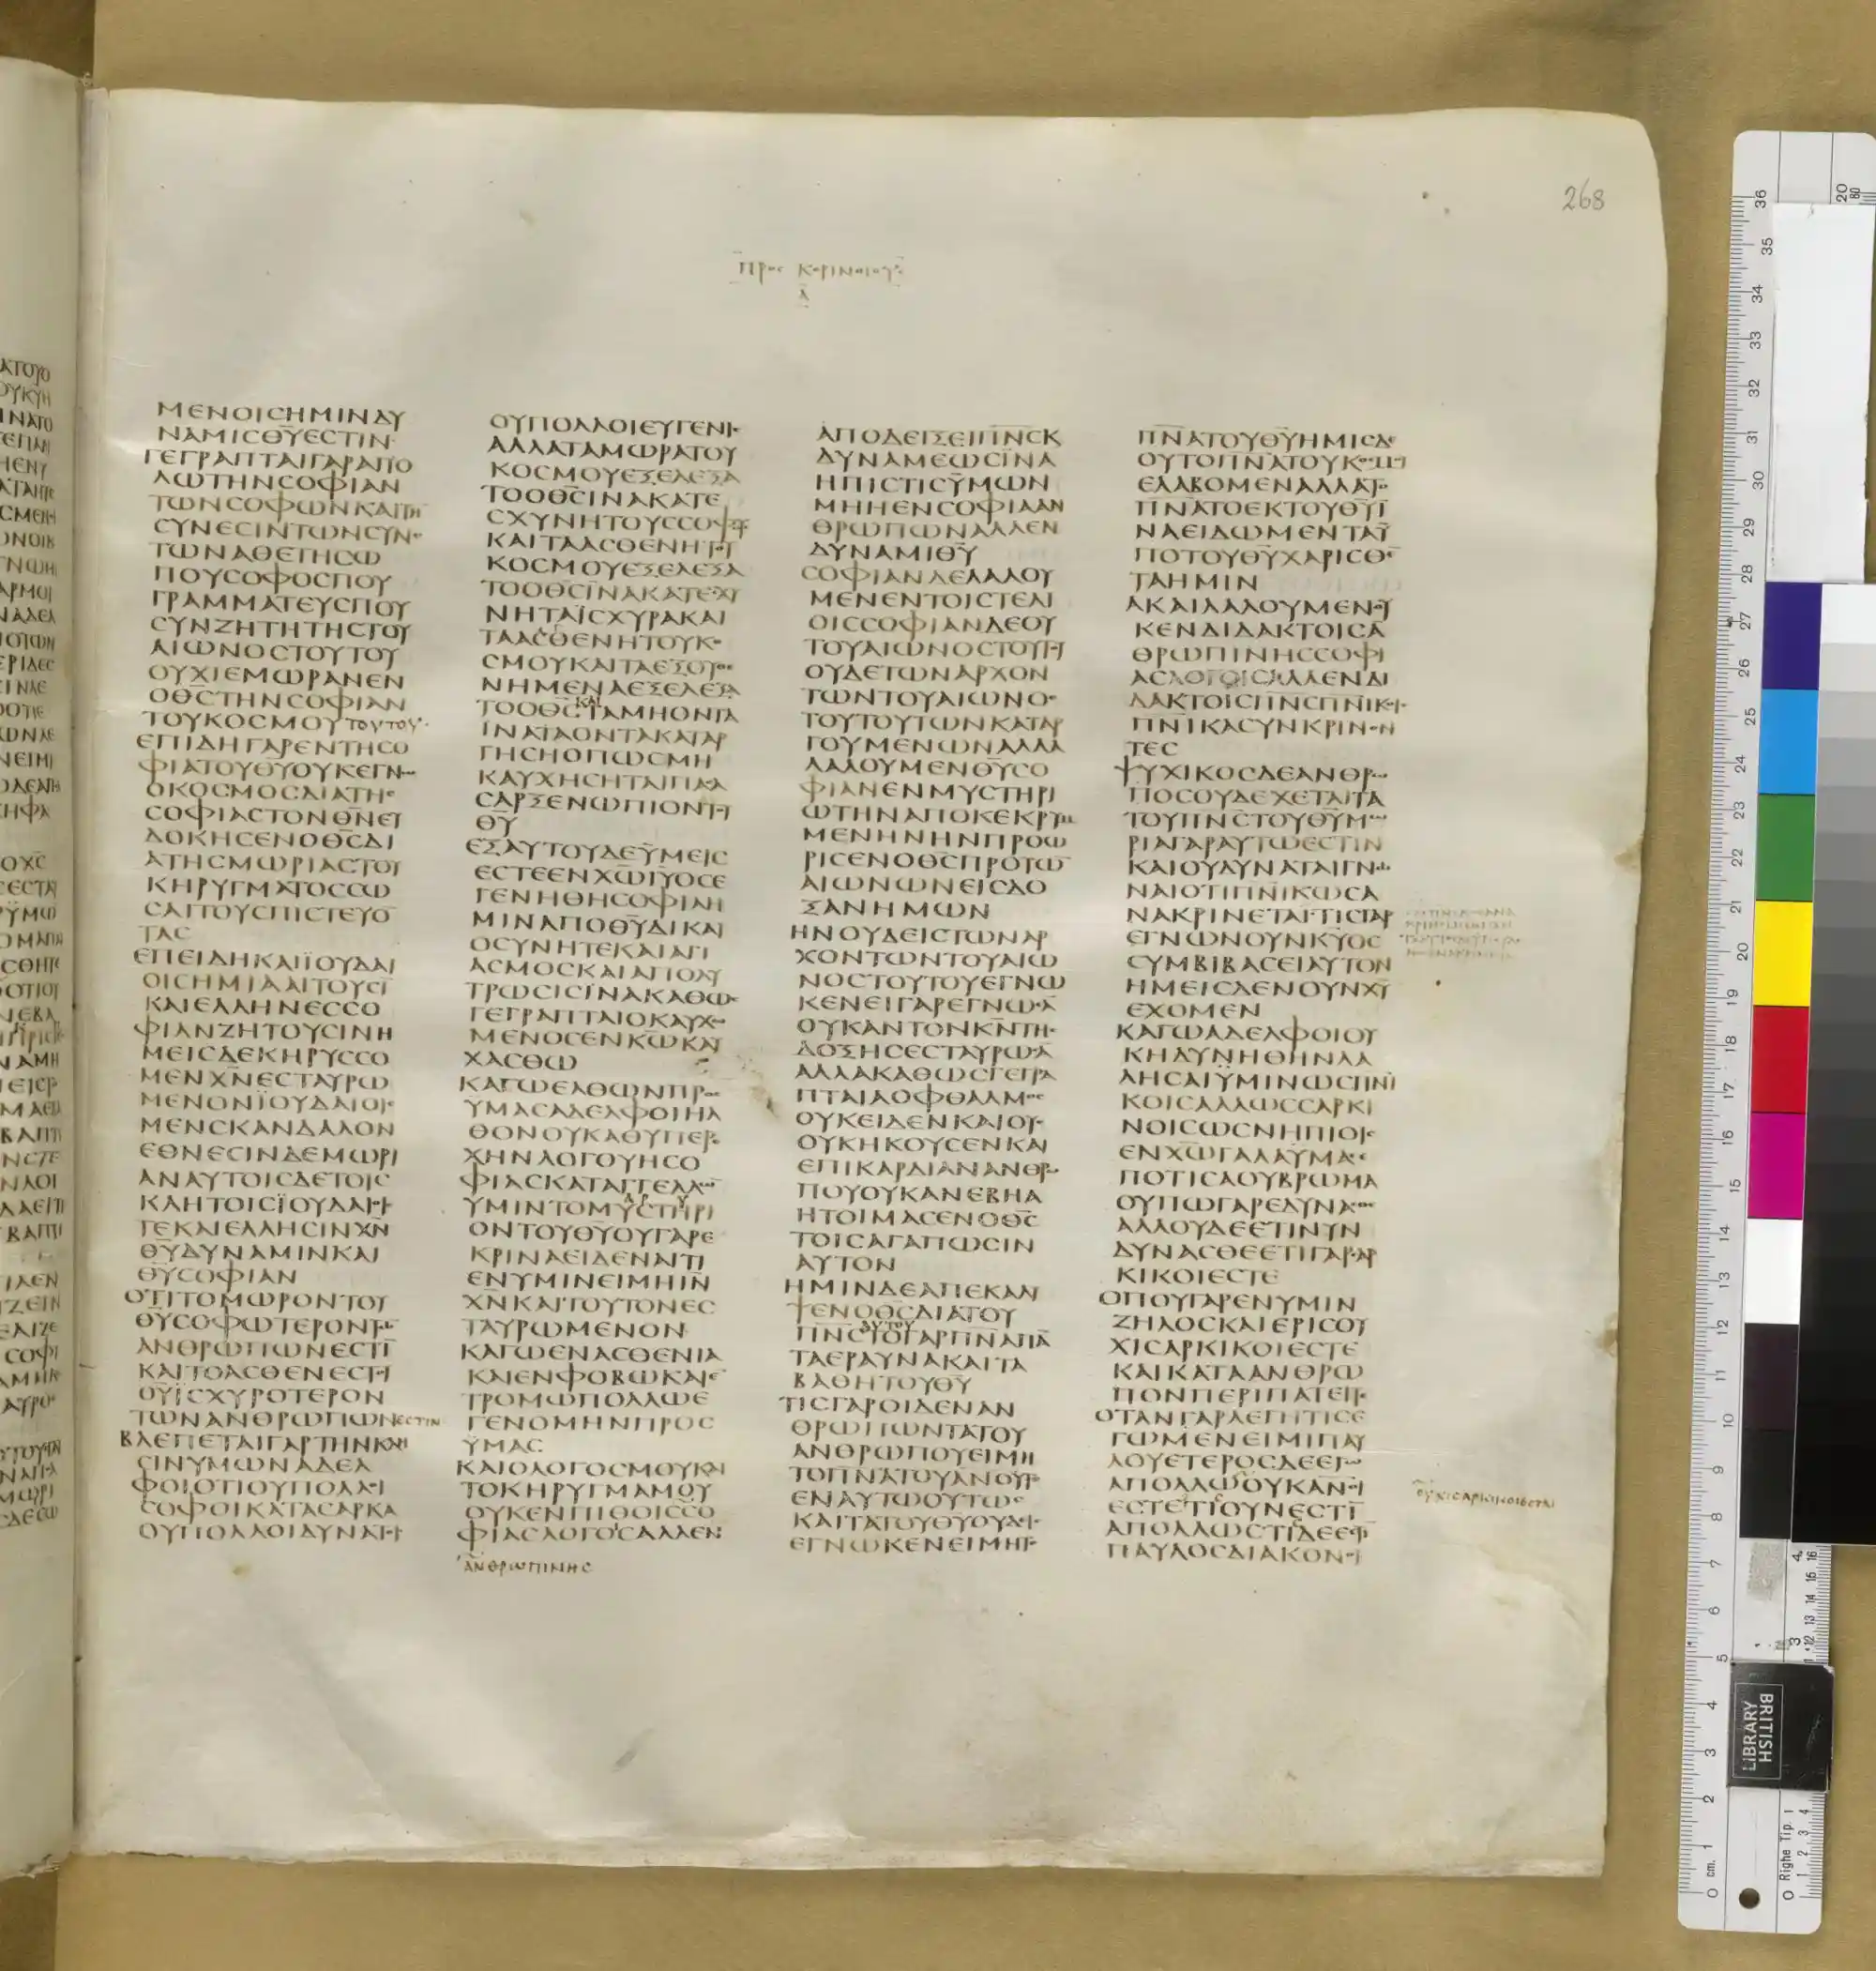 268
ΠΡΟΣ ΚΟΡΙΝΘΙΟΥΣ
Α
ΜΕΝΟΙϹΗΜΙΝΔΥ
ΝΑΜΙϹΘ̅Υ̅ΕϹΤΙΝ
ΓΕΓΡΑΠΤΑΙΓΑΡΑΠΟ
ΛΩΤΗΝϹΟΦΙΑΝ
ΤΩΝϹΟΦΩΝΚΑΙΤΗ̅
ϹΥΝΕϹΙΝΤΩΝϹΥΝΕ
ΤΩΝΑΘΕΤΗϹΩ
ΠΟΥϹΟΦΟϹΠΟΥ
ΓΡΑΜΜΑΤΕΥϹΠΟΥ
ϹΥΝΖΗΤΗΤΗϹΤΟΥ
ΑΙΩΝΟϹΤΟΥΤΟΥ
ΟΥΧΙΕΜΩΡΑΝΕΝ
ΟΘ̅Ϲ̅ΤΗΝϹΟΦΙΑΝ
ΤΟΥΚΟϹΜΟΥ ΤΟΥΤΟΥ
ΕΠΙΔΗΓΑΡΕΝΤΗϹΟ
ΦΙΑΤΟΥΘ̅Υ̅ΟΥΚΕΓΝΩ
ΟΚΟϹΜΟϹΔΙΑΤΗϹ
ϹΟΦΙΑϹΤΟΝΘ̅Ν̅ΕΥ
ΔΟΚΗϹΕΝΟΘ̅Ϲ̅ΔΙ
ΑΤΗϹΜΩΡΙΑϹΤΟΥ
ΚΗΡΥΓΜΑΤΟϹϹΩ
ϹΑΙΤΟΥϹΠΙϹΤΕΥΟ̅
ΤΑϹ
ΕΠΕΙΔΗΚΑΙΪΟΥΔΑΙ
ΟΙϹΗΜΙΑΑΙΤΟΥϹΙ̅
ΚΑΙΕΛΛΗΝΕϹϹΟ
ΦΙΑΝΖΗΤΟΥϹΙΝΗ
ΜΕΙϹΔΕΚΗΡΥϹϹΟ
ΜΕΝΧ̅Ν̅ΕϹΤΑΥΡΩ
ΜΕΝΟΝΪΟΥΔΑΙΟΙϹ
ΜΕΝϹΚΑΝΔΑΛΟΝ
ΕΘΝΕϹΙΝΔΕΜΩΡΙ
ΑΝΑΥΤΟΙϹΔΕΤΟΙϹ
ΚΛΗΤΟΙϹΪΟΥΔΑΙΟΙϹ
ΤΕΚΑΙΕΛΛΗϹΙΝΧ̅Ν̅
Θ̅Υ̅ΔΥΝΑΜΙΝΚΑΙ
Θ̅Υ̅ϹΟΦΙΑΝ
ΟΤΙΤΟΜΩΡΟΝΤΟΥ
Θ̅Υ̅ϹΟΦΩΤΕΡΟΝΤΩ̅
ΑΝΘΡΩΠΩΝΕϹΤΙ̅
ΚΑΙΤΟΑϹΘΕΝΕϹΤΟΥ
Θ̅Υ̅ΪϹΧΥΡΟΤΕΡΟΝ
ΤΩΝΑΝΘΡΩΠΩΝ ΕϹΤΙΝ
ΒΛΕΠΕΤΑΙΓΑΡΤΗΝΚΛΗ
ϹΙΝΥΜΩΝΑΔΕΛ
ΦΟΙΟΤΙΟΥΠΟΛΛΟΙ
ϹΟΦΟΙΚΑΤΑϹΑΡΚΑ
ΟΥΠΟΛΛΟΙΔΥΝΑΤΟΙ
ΟΥΠΟΛΛΟΙΕΥΓΕΝΙϹ
ΑΛΛΑΤΑΜΩΡΑΤΟΥ
ΚΟϹΜΟΥΕΞΕΛΕΞΑ
ΤΟΟΘ̅Ϲ̅ΙΝΑΚΑΤΕ
ϹΧΥΝΗΤΟΥϹϹΟΦΟΥϹ
ΚΑΙΤΑΑϹΘΕΝΗΤΟΥ
ΚΟϹΜΟΥΕΞΕΛΕΞΑ
ΤΟΟΘ̅Ϲ̅ΙΝΑΚΑΤΕΧΥ
ΝΗΤΑΪϹΧΥΡΑΚΑΙ
ΤΑΑϹΘΕΝΗΤΟΥΚΟ
ϹΜΟΥΚΑΙΤΑΕΞΟΥΘΕ
ΝΗΜΕΝΑΕΞΕΛΕΞΑ
ΚΑΙ
ΤΟΟΘ̅Ϲ̅ΤΑΜΗΟΝΤΑ
ΙΝΑΤΑΟΝΤΑΚΑΤΑΡ
ΓΗϹΗΟΠΩϹΜΗ
ΚΑΥΧΗϹΗΤΑΙΠΑϹΑ
ϹΑΡΞΕΝΩΠΙΟΝΤΟΥ
Θ̅Υ̅
ΕΞΑΥΤΟΥΔΕΫΜΕΙϹ
ΕϹΤΕΕΝΧ̅Ω̅Ι̅Υ̅ΟϹΕ
ΓΕΝΗΘΗϹΟΦΙΑΗ
ΜΙΝΑΠΟΘ̅Υ̅ΔΙΚΑΙ
ΟϹΥΝΗΤΕΚΑΙΑΓΙ
ΑϹΜΟϹΚΑΙΑΠΟΛΥ
ΤΡΩϹΙϹΪΝΑΚΑΘΩϹ
ΓΕΓΡΑΠΤΑΙΟΚΑΥΧΩ
ΜΕΝΟϹΕΝΚ̅Ω̅ΚΑΥ
ΧΑϹΘΩ
ΚΑΓΩΕΛΘΩΝΠΡΟϹ
ΥΜΑϹΑΔΕΛΦΟΙΗΛ
ΘΟΝΟΥΚΑΘΥΠΕΡΟ
ΧΗΝΛΟΓΟΥΗϹΟ
ΦΙΑϹΚΑΤΑΓΓΕΛΛΩ̅
ΥΜΙΝΤΟΜΥϹΤΗΡΙ
ΟΝΤΟΥΘ̅Υ̅ΟΥΓΑΡΕ
ΚΡΙΝΑΕΙΔΕΝΑΙΤΙ
ΕΝΥΜΙΝΕΙΜΗΙ̅Ν̅
Χ̅Ν̅ΚΑΙΤΟΥΤΟΝΕϹ
ΤΑΥΡΩΜΕΝΟΝ
ΚΑΓΩΕΝΑϹΘΕΝΙΑ
ΚΑΙΕΝΦΟΒΩΚΑΙΕ̅
ΤΡΟΜΩΠΟΛΛΩΕ
ΓΕΝΟΜΗΝΠΡΟϹ
ΫΜΑϹ
ΚΑΙΟΛΟΓΟϹΜΟΥΚΑΙ
ΤΟΚΗΡΥΓΜΑΜΟΥ
ΟΥΚΕΝΠΙΘΟΙϹϹΟ
ΦΙΑϹΛΟΓΟΙϹΑΛΛΕΝ
ΑΝΘΡΩΠΙΝΗϹ
ΑΠΟΔΕΙΞΕΙΠ̅Ν̅Ϲ̅Κ
ΔΥΝΑΜΕΩϹΪΝΑ
ΗΠΙϹΤΙϹΫΜΩΝ
ΜΗΗΕΝϹΟΦΙΑΑΝ
ΘΡΩΠΩΝΑΛΛΕΝ
ΔΥΝΑΜΙΘ̅Υ̅
ϹΟΦΙΑΝΛΕΛΑΛΟΥ
ΜΕΝΕΝΤΟΙϹΤΕΛΙ
ΟΙϹϹΟΦΙΑΝΔΕΟΥ
ΤΟΥΑΙΩΝΟϹΤΟΥΤΟΥ
ΟΥΔΕΤΩΝΑΡΧΟΝ
ΤΩΝΤΟΥΑΙΩΝΟϹ
ΤΟΥΤΟΥΤΩΝΚΑΤΑΡ
ΓΟΥΜΕΝΩΝΑΛΛΑ
ΛΑΛΟΥΜΕΝΘ̅Υ̅ϹΟ
ΦΙΑΝΕΝΜΥϹΤΗΡΙ
ΩΤΗΝΑΠΟΚΕΚΡΥΜ
ΜΕΝΗΝΗΝΠΡΟΩ
ΡΙϹΕΝΟΘ̅Ϲ̅ΠΡΟΤΩ̅
ΑΙΩΝΩΝΕΙϹΔΟ
ΞΑΝΗΜΩΝ
ΗΝΟΥΔΕΙϹΤΩΝΑΡ
ΧΟΝΤΩΝΤΟΥΑΙΩ
ΝΟϹΤΟΥΤΟΥΕΓΝΩ
ΚΕΝΕΙΓΑΡΕΓΝΩϹΑ̅
ΟΥΚΑΝΤΟΝΚ̅Ν̅ΤΗϹ
ΔΟΞΗϹΕϹΤΑΥΡΩϹΑ̅
ΑΛΛΑΚΑΘΩϹΓΕΓΡΑ
ΠΤΑΙΑΟΦΘΑΛΜΟϹ
ΟΥΚΕΙΔΕΝΚΑΙΟΥϹ
ΟΥΚΗΚΟΥϹΕΝΚΑΙ
ΕΠΙΚΑΡΔΙΑΝΑΝΘΡΩ
ΠΟΥΟΥΚΑΝΕΒΗΑ
ΗΤΟΙΜΑϹΕΝΟΘ̅Ϲ̅
ΤΟΙϹΑΓΑΠΩϹΙΝ
ΑΥΤΟΝ
ΗΜΙΝΔΕΑΠΕΚΑΛΥ
ΨΕΝΟΘ̅Ϲ̅ΔΙΑΤΟΥ
ΑΥΤΟΥ
Π̅Ν̅Ϲ̅ΤΟΓΑΡΠ̅Ν̅ΑΠΑ̅
ΤΑΕΡΑΥΝΑΚΑΙΤΑ
ΒΑΘΗΤΟΥΘ̅Υ̅
ΤΙϹΓΑΡΟΙΔΕΝΑΝ
ΘΡΩΠΩΝΤΑΤΟΥ
ΑΝΘΡΩΠΟΥΕΙΜΗ
ΤΟΠ̅Ν̅ΑΤΟΥΑΝΟΥΤΟ
ΕΝΑΥΤΩΟΥΤΩϹ
ΚΑΙΤΑΤΟΥΘ̅Υ̅ΟΥΔΙϹ
ΕΓΝΩΚΕΝΕΙΜΗΤΟ
Π̅Ν̅ΑΤΟΥΘ̅Υ̅ΗΜΙϹΔΕ
ΟΥΤΟΠ̅Ν̅ΑΤΟΥΚΟϹΜΟΥ
ΕΛΑΒΟΜΕΝΑΛΛΑΤΟ
Π̅Ν̅ΑΤΟΕΚΤΟΥΘ̅Υ̅Ϊ
ΝΑΕΙΔΩΜΕΝΤΑΫ
ΠΟΤΟΥΘ̅Υ̅ΧΑΡΙϹΘΕ̅
ΤΑΗΜΙΝ
ΑΚΑΙΛΑΛΟΥΜΕΝΟΥ
ΚΕΝΔΙΔΑΚΤΟΙϹΑ̅
ΘΡΩΠΙΝΗϹϹΟΦΙ
ΑϹΛΟΓΟΙϹΑΛΛΕΝΔΙ
ΔΑΚΤΟΙϹΠ̅Ν̅Ϲ̅Π̅Ν̅ΙΚΟΙϹ
Π̅Ν̅ΙΚΑϹΥΝΚΡΙΝΟΝ
ΤΕϹ
ΨΥΧΙΚΟϹΔΕΑΝΘΡΩ
ΠΟϹΟΥΔΕΧΕΤΑΙΤΑ
ΤΟΥΠ̅Ν̅Ϲ̅ΤΟΥΘ̅Υ̅ΜΩ
ΡΙΑΓΑΡΑΥΤΩΕϹΤΙΝ
ΚΑΙΟΥΔΥΝΑΤΑΙΓΝΩ
ΝΑΙΟΤΙΠ̅Ν̅ΙΚΩϹΑ
ΝΑΚΡΙΝΕΤΑΙΤΙϹΓΑΡ
ΕΓΝΩΝΟΥΝΚ̅Υ̅ΟϹ
ϹΥΜΒΙΒΑϹΕΙΑΥΤΟΝ
ΗΜΕΙϹΔΕΝΟΥΝΧ̅Υ̅
ΕΧΟΜΕΝ
ΚΑΓΩΑΔΕΛΦΟΙΟΥ
ΚΗΔΥΝΗΘΗΝΛΑ
ΛΗϹΑΙΫΜΙΝΩϹΠ̅Ν̅Ι
ΚΟΙϹΑΛΛΩϹϹΑΡΚΙ
ΝΟΙϹΩϹΝΗΠΙΟΙϹ
ΕΝΧ̅Ω̅ΓΑΛΑΥΜΑϹΕ
ΠΟΤΙϹΑΟΥΒΡΩΜΑ
ΟΥΠΩΓΑΡΕΔΥΝΑϹΘΕ
ΑΛΛΟΥΔΕΕΤΙΝΥΝ
ΔΥΝΑϹΘΕΕΤΙΓΑΡϹΑΡ
ΚΙΚΟΙΕϹΤΕ
ΟΠΟΥΓΑΡΕΝΥΜΙΝ
ΖΗΛΟϹΚΑΙΕΡΙϹΟΥ
ΧΙϹΑΡΚΙΚΟΙΕϹΤΕ
ΚΑΙΚΑΤΑΑΝΘΡΩ
ΠΟΝΠΕΡΙΠΑΤΕΙΤΕ
ΟΤΑΝΓΑΡΛΕΓΗΤΙϹΕ
ΓΩΜΕΝΕΙΜΙΠΑΥ
ΛΟΥΕΤΕΡΟϹΔΕΕΓΩ
ΑΠΟΛΛΩΟΥΚΑΝΟΙ
ΟΥΧΙϹΑΡΚΙΚΟΙΕϹΤΑΙ
ΕϹΤΕΤΙΟΥΝΕϹΤΙ̅
ΑΠΟΛΛΩϹΤΙΔΕΕϹΤΙ̅
ΠΑΥΛΟϹΔΙΑΚΟΝΟΙ
BRITISH
LIBRARY